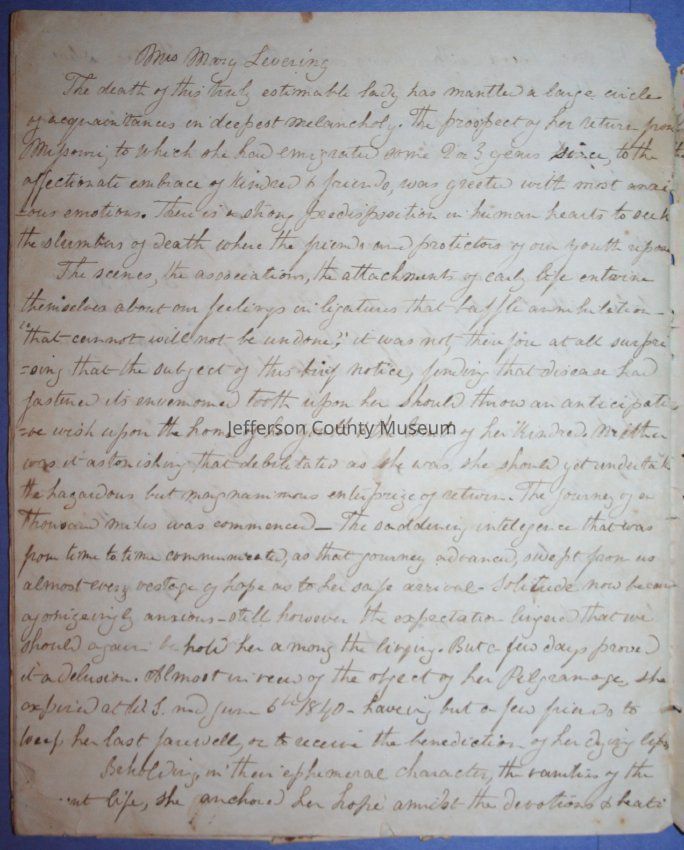 Mrs Mary Levering
The death of this truly estimable lady has mantled a large circle
of acquaintances in deepest melancholy. The prospect of her return from
Missouri, to which she had emigrated some 2 or 3 years since, to the
affectionate embrace of kindred & friends, was greeted with most anxi
=ous emotions. There is a strong predisposition in human hearts to seek
the slumbers of death where the friends and protictors of our youth repose
The scenes, the associations, the attachments of early life entwine
themselves about our feelings in ligatures that baffle annihilation -
"that cannot will not be undone;" it was not therefore at all surpri
=sing that the subject of this brief notice, finding that disease had
fastened its envenomed tooth upon her should throw an anticipati
=ve wish upon the home of her youth of her kindred. Neither
was it astonishing that debilitated as she was, she should yet undertake
the hazardous but magnanimous enterprize of return. The journey of a
thousand miles was commenced — The saddening intelegence that was
from time to time communicated, as that journey advanced, swept from us
almost every vestage of hope as to her safe arrival - Solitude now became
agonizeingly anxious - still however the expectation lingered that we
should again behold her among the living. But a few days proved
it a delusion. Almost in view of the object of her Pilgramage, she
expired at June 6th 1840 - haveing but a few friends to
weep her last farewell, or to receive the benediction of her dying lips
Beholding, in their ephemeral character, the vanities of the
life, she anchored her hope amidst the devotions & beati
Jefferson County Museum